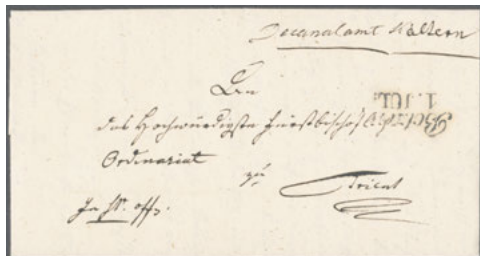 Decanalamt Kaltern
An
das Hochwürdigste Fürstbischöfliche
1. JUL:
Ordinariat
zu Trient